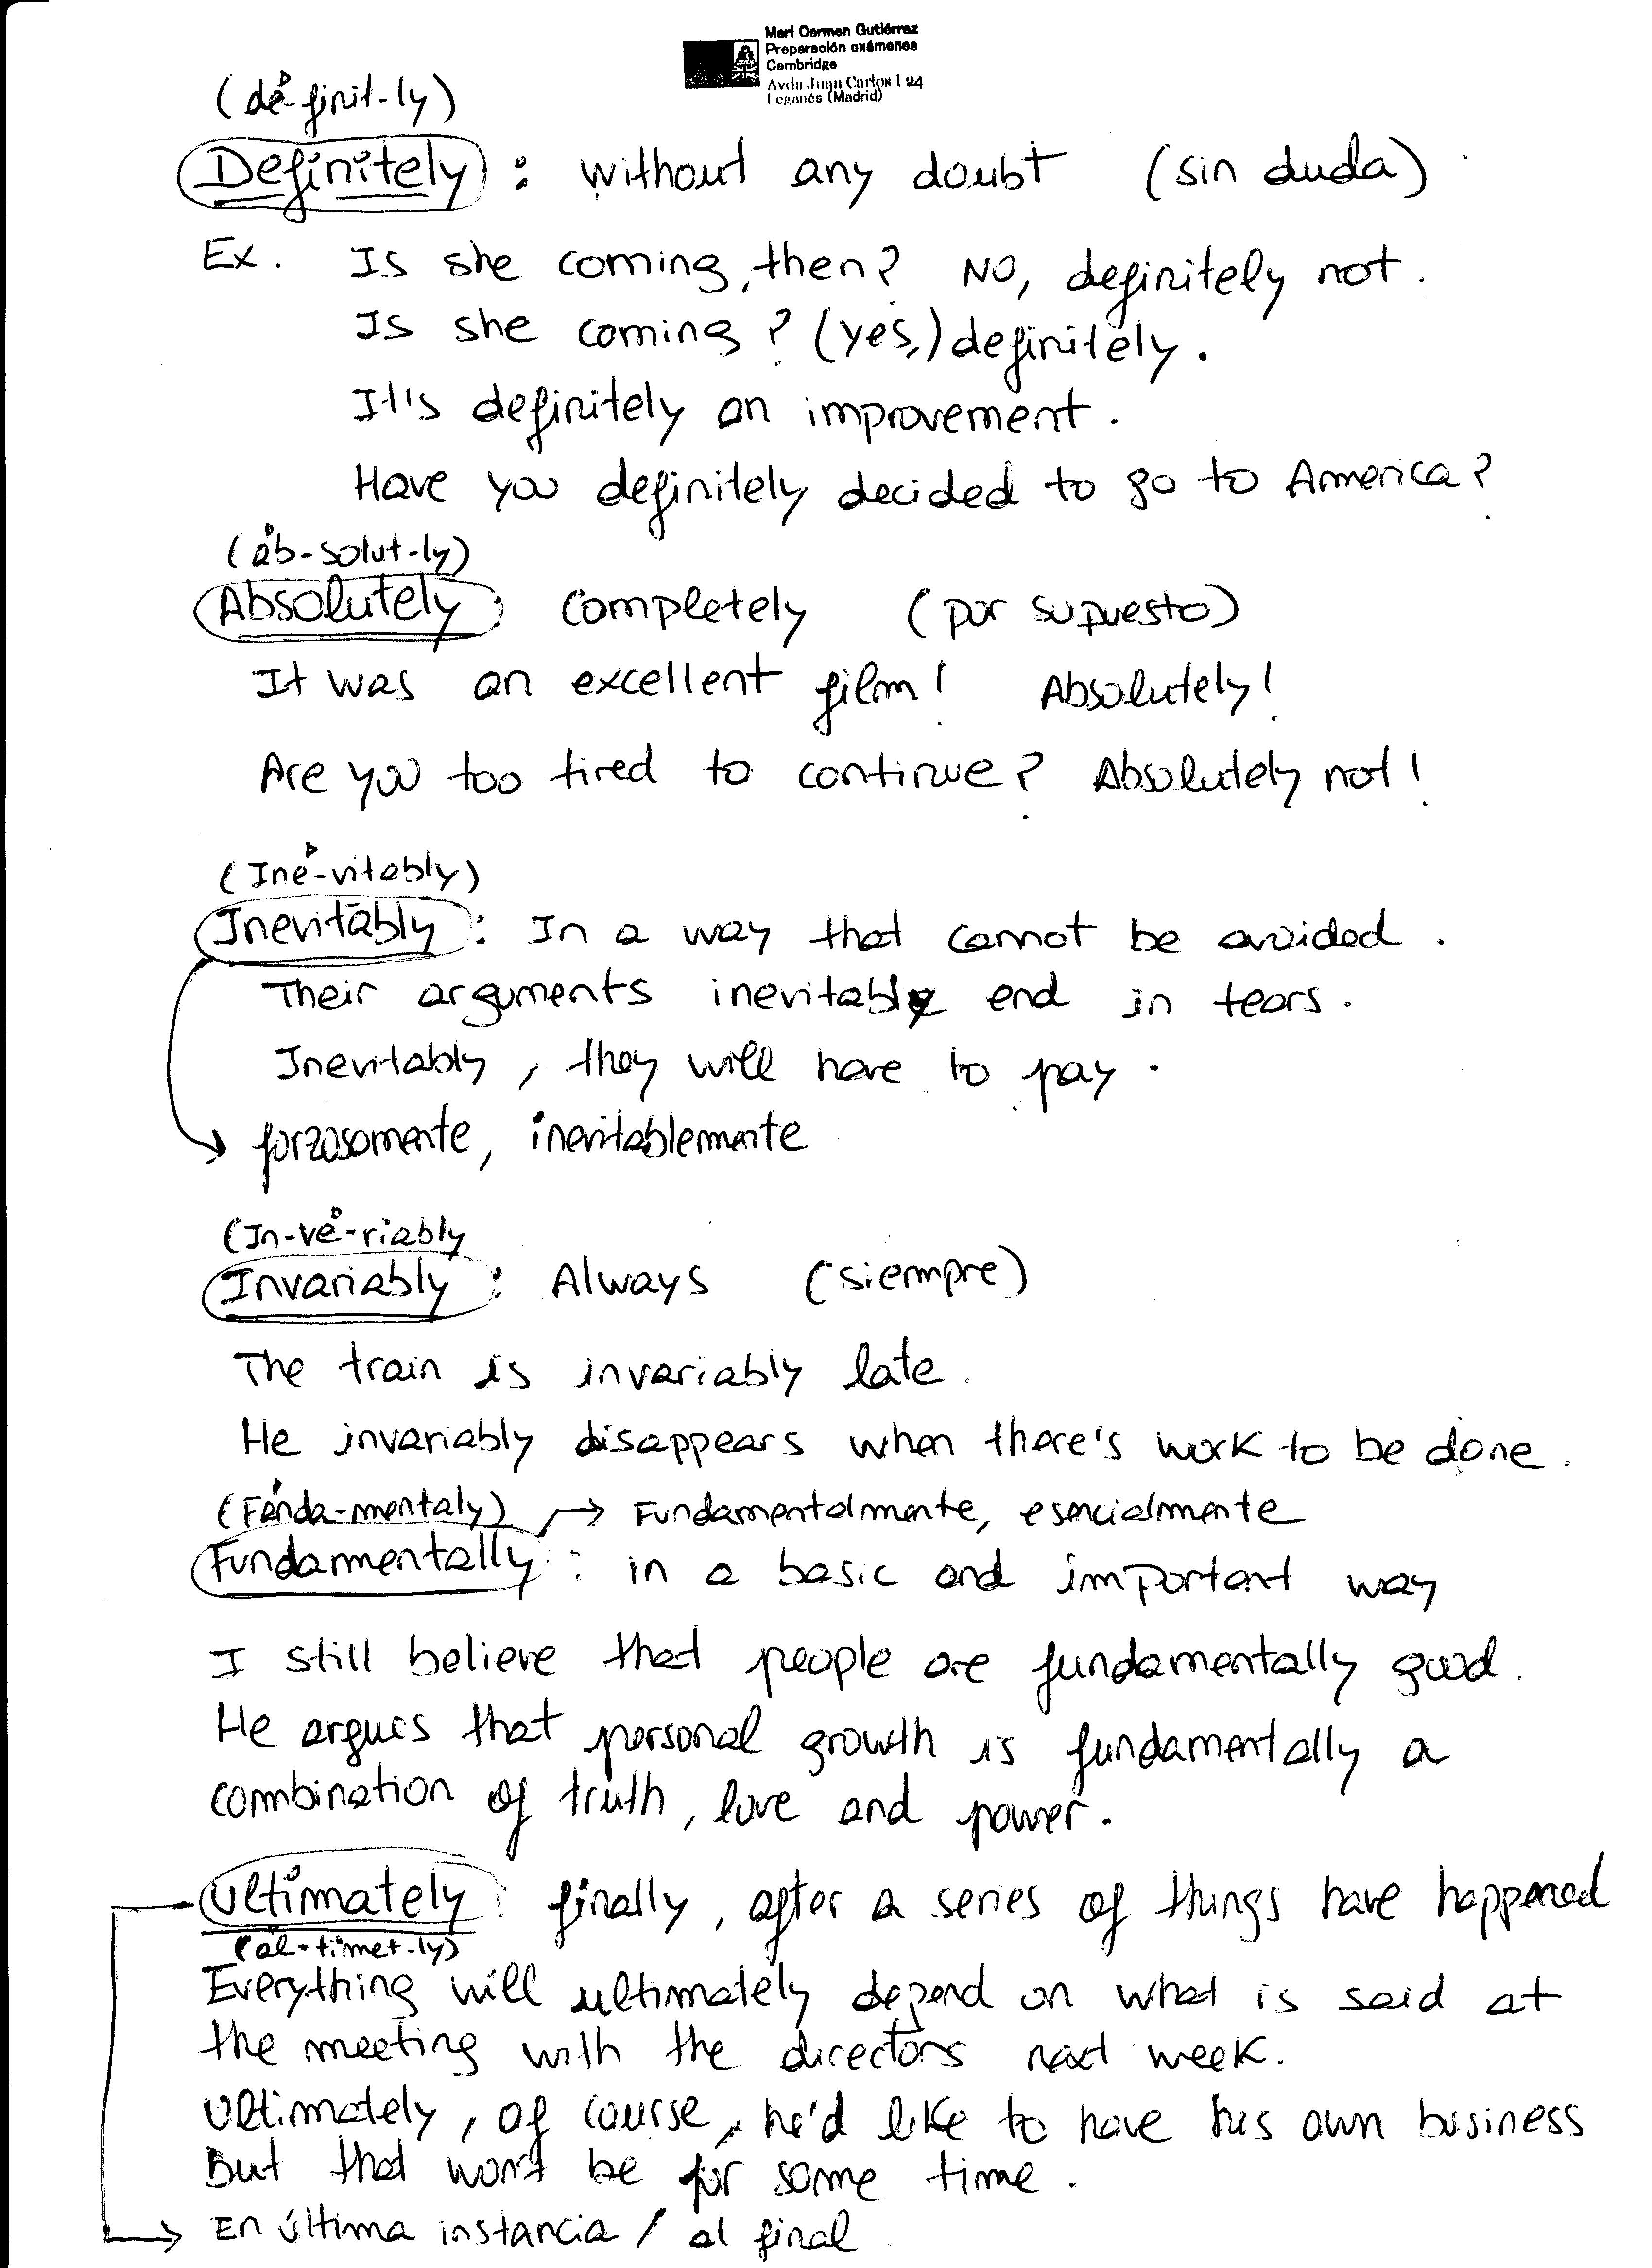 Mari Carmen Gutiérrez
Preparación exámenes
Cambridge
Avda Juan Carlos I 24
Leganés (Madrid)
(dé-finit-ly)
Definitely : without any doubt (sin duda)
Ex. Is she coming, then? NO, definitely not.
Is she coming? (yes,) definitely.
It's definitely an improvement.
Have you definitely decided to go to America?
(áb-solut-ly)
Absolutely : completely (por supuesto)
It was an excellent film! Absolutely!
Are you too tired to continue? Absolutely not!
(Iné-vitably)
Inevitably : In a way that cannot be avoided.
Their arguments inevitably end in tears.
Inevitably, they will have to pay.
forzosamente, inevitablemente
(In-vé-riably
Invariably : Always (siempre)
The train is invariably late.
He invariably disappears when there's work to be done.
(Fánda-mentaly) → Fundamentalmente, esencialmente
Fundamentally : in a basic and important way
I still believe that people are fundamentally good.
He argues that personal growth is fundamentally a
combination of truth, love and power.
Ultimately : finally, after a series of things have happened
(ál-timet-ly)
Everything will ultimately depend on what is said at
the meeting with the directors next week.
Ultimately, of course, he'd like to have his own business
But that won't be for some time.
En última instancia / al final